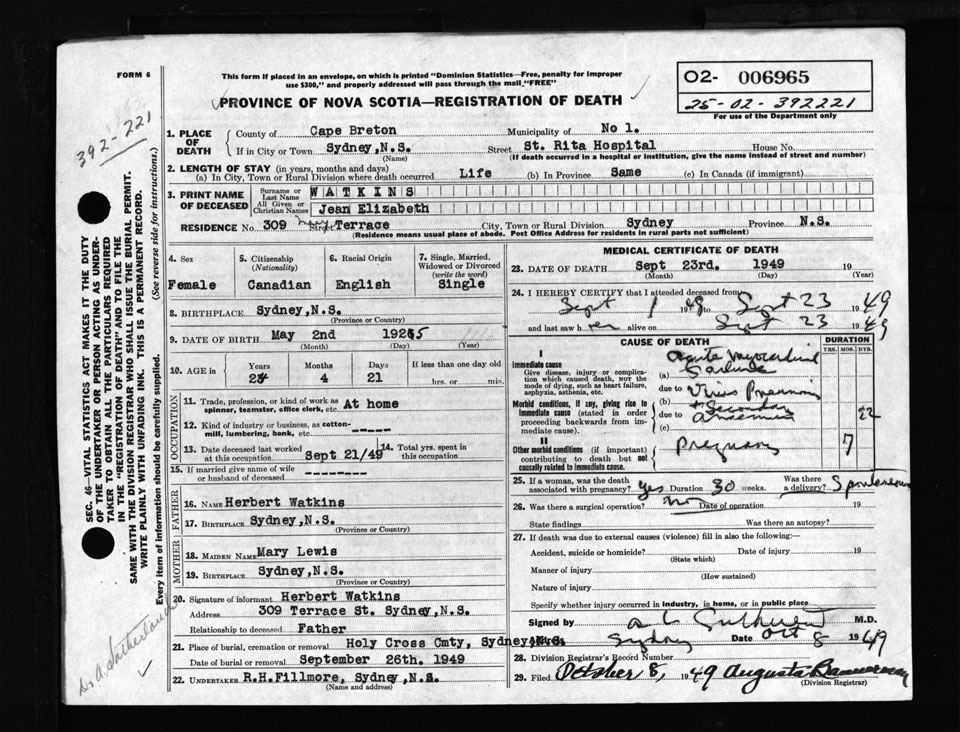 FORM 6
This form if placed in an envelope, on which is printed "Dominion Statistics—Free, penalty for improper
use $300," and properly addressed will pass through the mail "FREE"
PROVINCE OF NOVA SCOTIA—REGISTRATION OF DEATH
O2- 006965
25-02-392221
For use of the Department only
392-221
SEC. 46—VITAL STATISTICS ACT MAKES IT THE DUTY
OF THE UNDERTAKER OR PERSON ACTING AS UNDER-
TAKER TO OBTAIN ALL THE PARTICULARS REQUIRED
IN THE "REGISTRATION OF DEATH" AND TO FILE THE
SAME WITH THE DIVISION REGISTRAR WHO SHALL ISSUE THE BURIAL PERMIT.
WRITE PLAINLY WITH UNFADING INK. THIS IS A PERMANENT RECORD.
Every item of information should be carefully supplied. (See reverse side for instructions.)
Dr A. Sutherland
1. PLACE OF DEATH
County of Cape Breton Municipality of No 1.
If in City or Town Sydney,N.S. Street St. Rita Hospital House No.
(Name) (If death occurred in a hospital or institution, give the name instead of street and number)
2. LENGTH OF STAY (in years, months and days)
(a) In City, Town or Rural Division where death occurred Life (b) In Province Same (c) In Canada (if immigrant)
3. PRINT NAME OF DECEASED
Surname or Last Name WATKINS
All Given or Christian Names Jean Elizabeth
RESIDENCE No. 309 Street Terrace City, Town or Rural Division Sydney Province N.S.
(Residence means usual place of abode. Post Office Address for residents in rural parts not sufficient)
4. Sex
Female
5. Citizenship (Nationality)
Canadian
6. Racial Origin
English
7. Single, Married, Widowed or Divorced (write the word)
Single
8. BIRTHPLACE Sydney,N.S.
(Province or Country)
9. DATE OF BIRTH May 2nd 1925
(Month) (Day) (Year)
10. AGE in Years Months Days If less than one day old
24 4 21 hrs. or min.
OCCUPATION
11. Trade, profession, or kind of work as
spinner, teamster, office clerk, etc. At home
12. Kind of industry or business, as cotton-
mill, lumbering, bank, etc. ------
13. Date deceased last worked
at this occupation Sept 21/49
14. Total yrs. spent
in this occupation
15. If married give name of wife
or husband of deceased --------
FATHER
16. NAME Herbert Watkins
17. BIRTHPLACE Sydney,N.S.
(Province or Country)
MOTHER
18. MAIDEN NAME Mary Lewis
19. BIRTHPLACE Sydney,N.S.
(Province or Country)
20. Signature of informant Herbert Watkins
Address 309 Terrace St. Sydney,N.S.
Relationship to deceased Father
21. Place of burial, cremation or removal Holy Cross Cmty, Sydney,N.S.
Date of burial or removal September 26th. 1949
22. UNDERTAKER R.H.Fillmore, Sydney,N.S.
(Name and address)
MEDICAL CERTIFICATE OF DEATH
23. DATE OF DEATH Sept 23rd. 1949 19
(Month) (Day) (Year)
24. I HEREBY CERTIFY that I attended deceased from
Sept 1 1949 to Sept 23 1949
and last saw her alive on Sept 23 1949
CAUSE OF DEATH
DURATION
YRS. MOS. DYS.
I
Immediate cause
Give disease, injury or complica-
tion which caused death, NOT the
mode of dying, such as heart failure,
asphyxia, asthenia, etc.
(a) Acute Myocardial Failure
due to
Morbid conditions, if any, giving rise to
immediate cause (stated in order
proceeding backwards from im-
mediate cause).
(b) Virus Pneumonia
due to Secondary
(c) Anaemia 22
II
Other morbid conditions (if important)
contributing to death but not
causally related to immediate cause.
Pregnancy 7
25. If a woman, was the death
associated with pregnancy? Yes Duration 30 weeks. Was there
a delivery? Spontaneous
26. Was there a surgical operation? No Date of operation 19
State findings Was there an autopsy?
27. If death was due to external causes (violence) fill in also the following:—
Accident, suicide or homicide? Date of injury 19
(State which)
Manner of injury
(How sustained)
Nature of injury
Specify whether injury occurred in industry, in home, or in public place
Signed by A C Sutherland M.D.
Sydney Date Oct 8 1949
28. Division Registrar's Record Number
29. Filed October 8, 1949 Augusta
(Division Registrar)